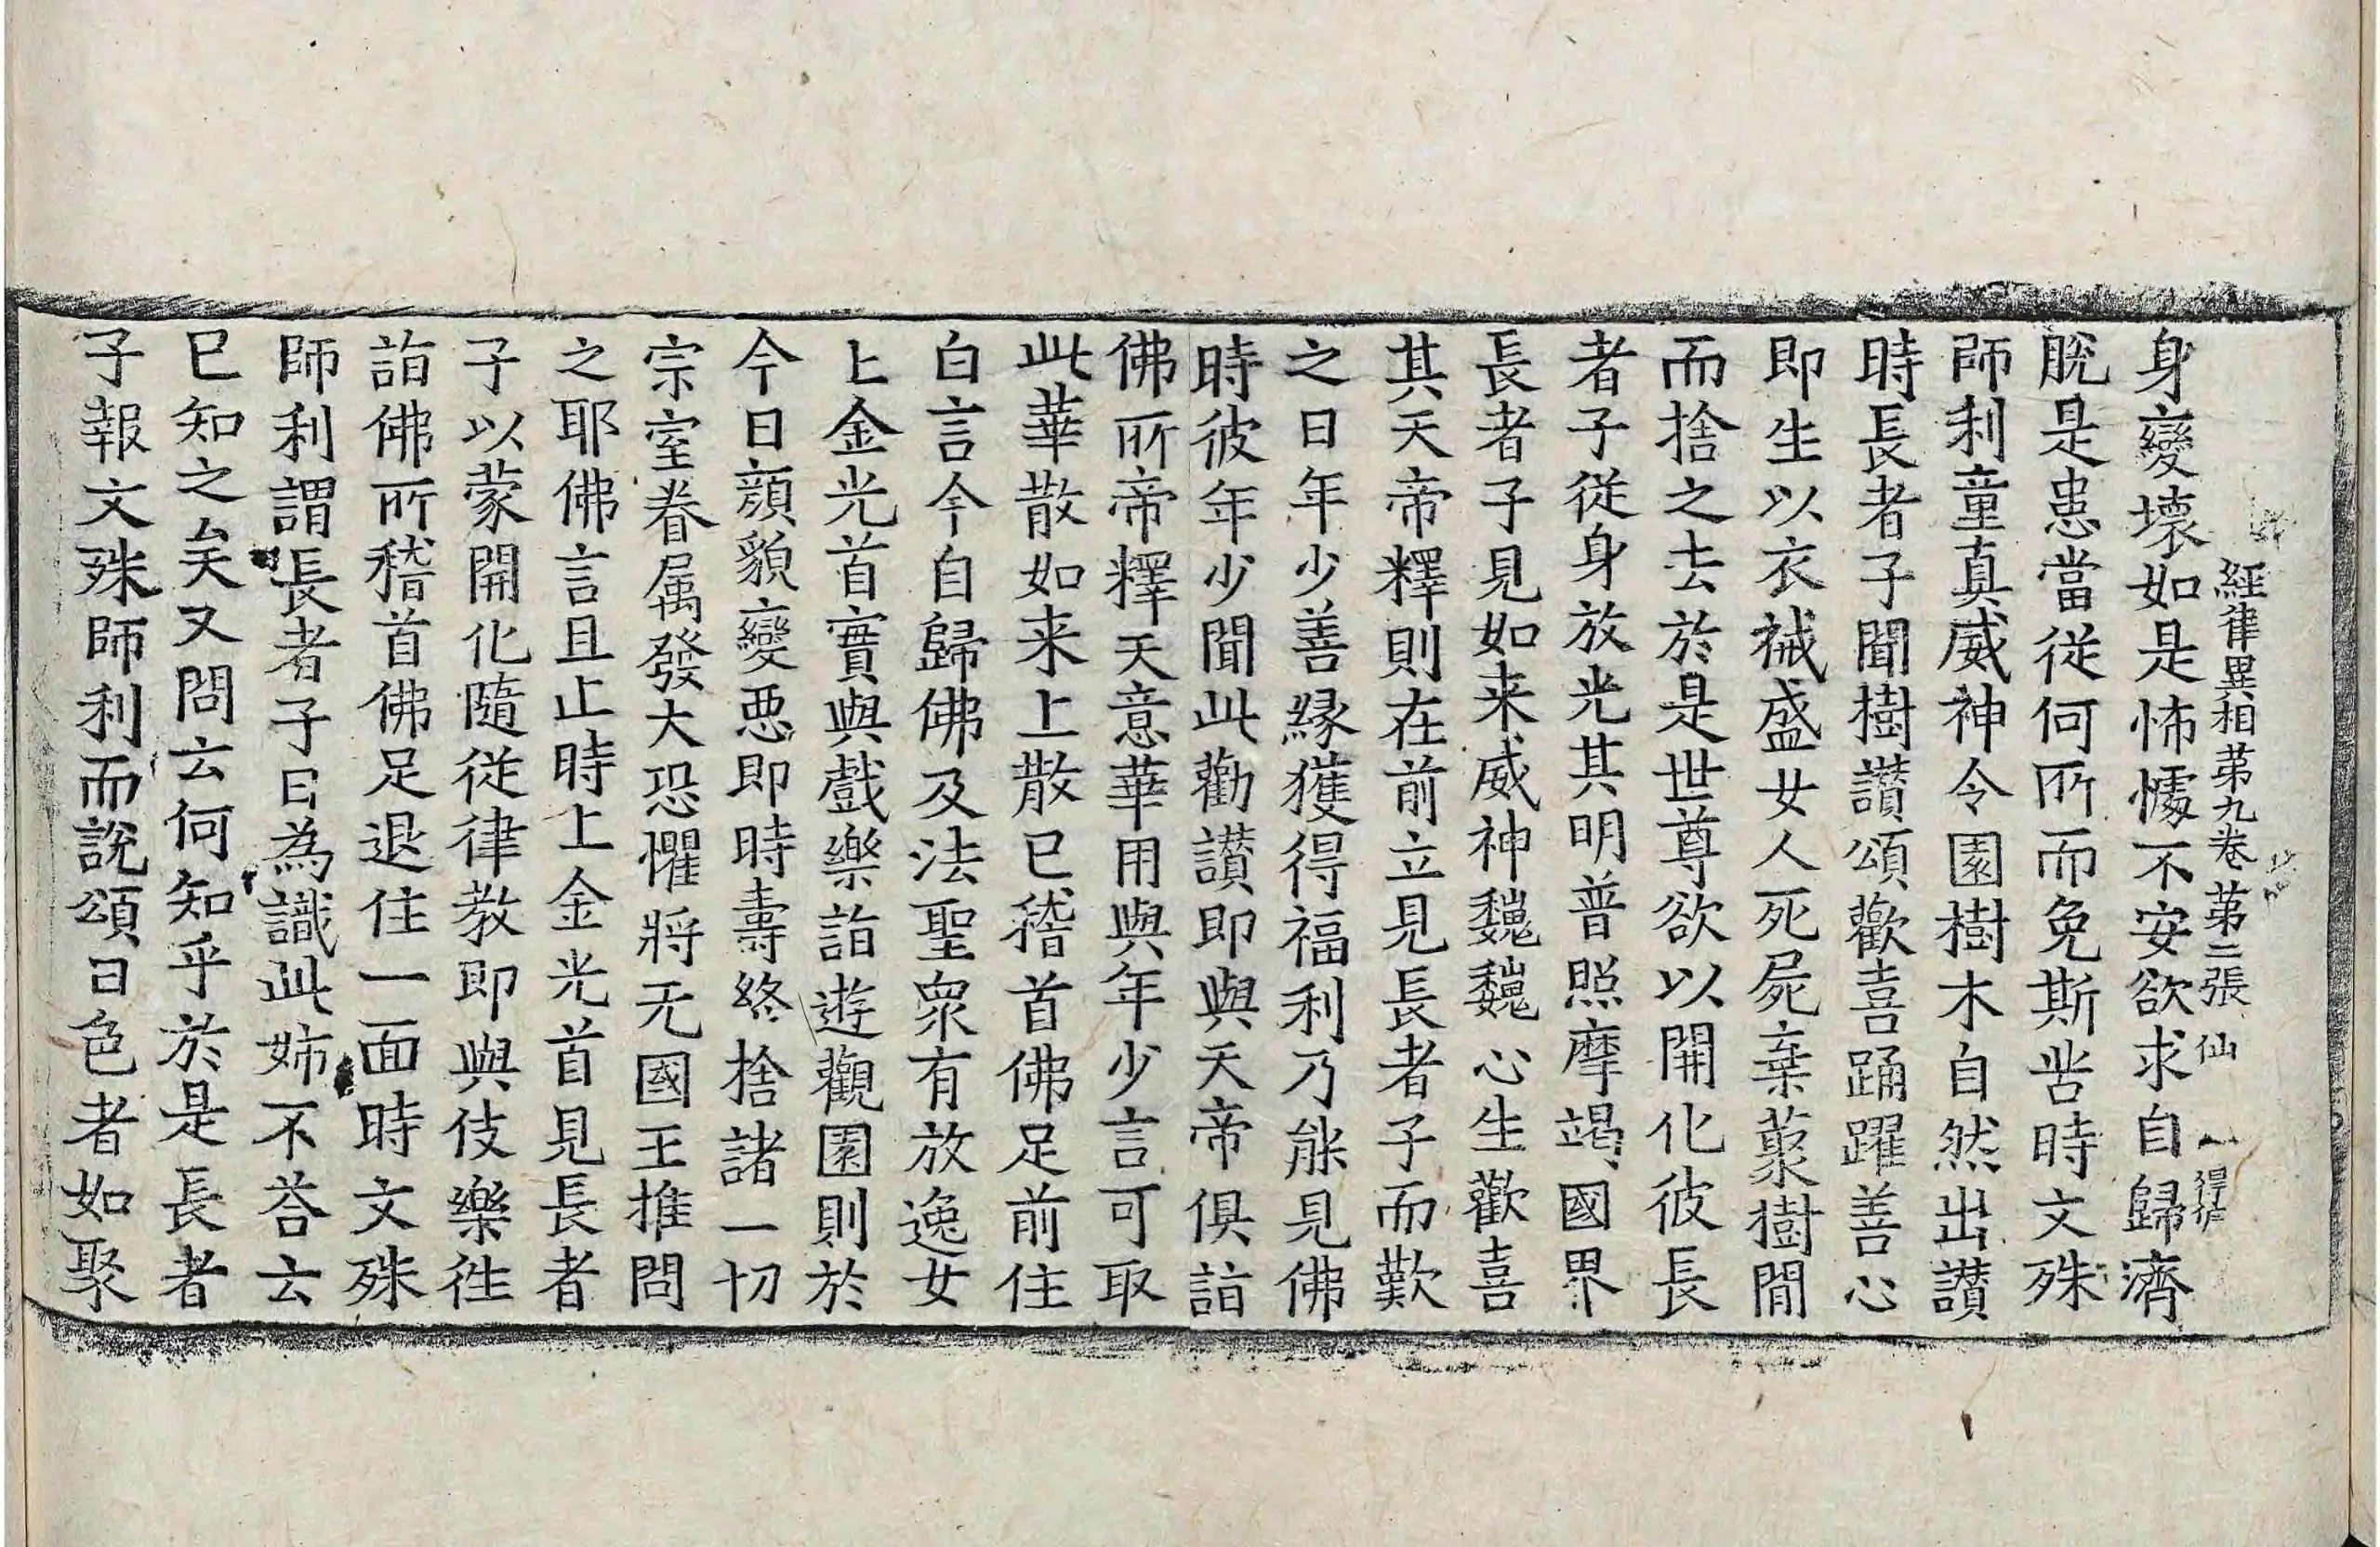 經律異相第九卷 第二張 仙
身變壞如是怖懅不安欲求自歸濟
脫是患當從何所而免斯苦時文殊
師利童真威神令園樹木自然出讃
時長者子聞樹讃頌歡喜踊躍善心
即生以衣裓盛女人死屍棄藂樹間
而捨之去於是世尊欲以開化彼長
者子從身放光其明普照摩竭國界
長者子見如来威神巍巍心生歡喜
其天帝釋則在前立見長者子而歎
之曰年少善緣獲得福利乃能見佛
時彼年少聞此勸讃即與天帝俱詣
佛所帝釋天意華用與年少言可取
此華散如来上散已稽首佛足前住
白言今自歸佛及法聖衆有放逸女
上金光首實與戲樂詣遊觀園則於
今日顏貌變惡即時壽終捨諸一切
宗室眷属發大恐懼將无國王推問
之耶佛言且止時上金光首見長者
子以蒙開化隨從律教即與伎樂往
詣佛所稽首佛足退住一面時文殊
師利謂長者子曰為識此姉不荅云
已知之矣又問云何知乎於是長者
子報文殊師利而說頌曰色者如聚